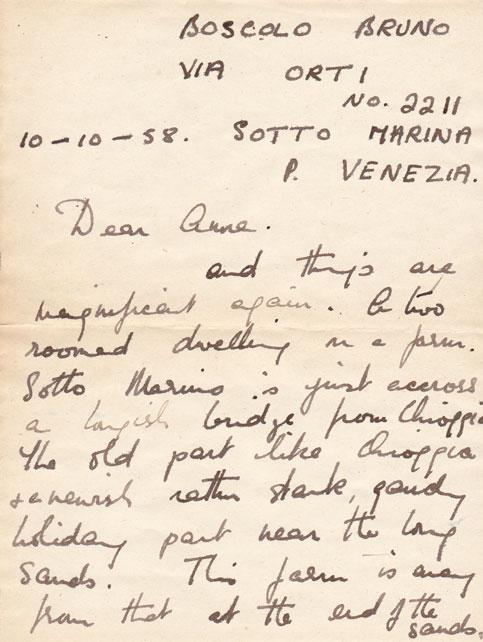 BOSCOLO BRUNO
VIA ORTI
NO. 2211
10-10-58. SOTTO MARINA
P. VENEZIA.
Dear Anne.
and things are
magnificent again. A two
roomed dwelling on a farm.
Sotto Marino is just accross
a longish bridge from Chioggia
The old part like Chioggia
& a newish rather stark, gaudy
holiday part near the long
sands. This farm is away
from that at the end of the
sands.